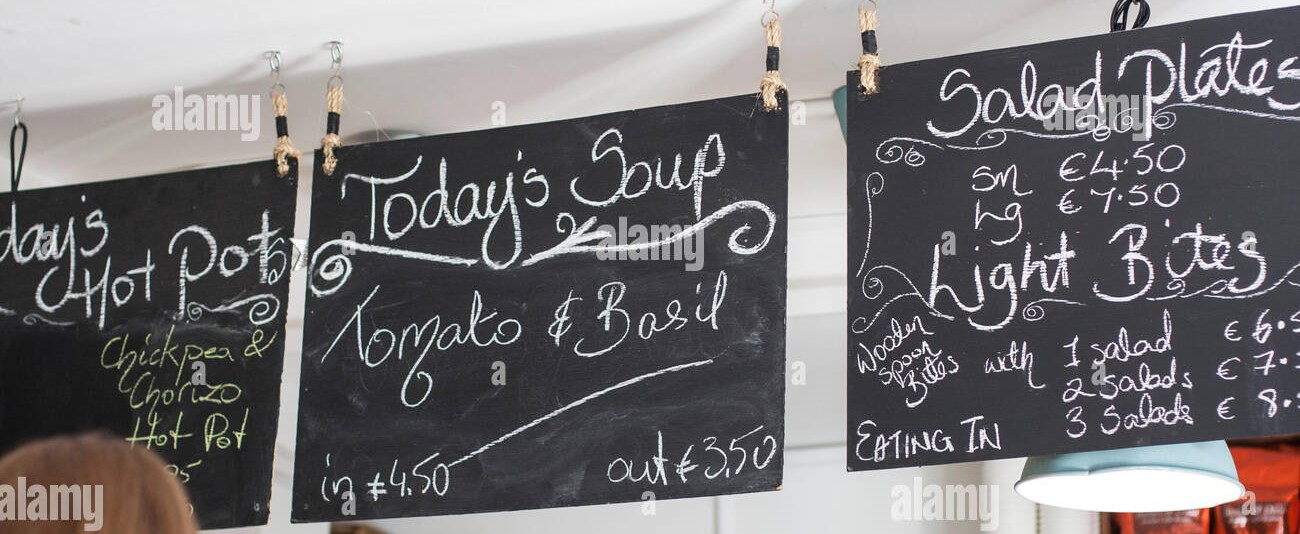 day's
Hot Pot
Chickpea &
Chorizo
Hot Pot
Today's Soup
Tomato & Basil
in €4.50 out €3.50
Salad Plates
sm €4.50
Lg €7.50
Light Bites
Wooden
Spoon
Bites
with 1 salad € 6.5
2 Salads € 7.
3 Salads € 8.
EATING IN
alamy
alamy
alamy
alamy